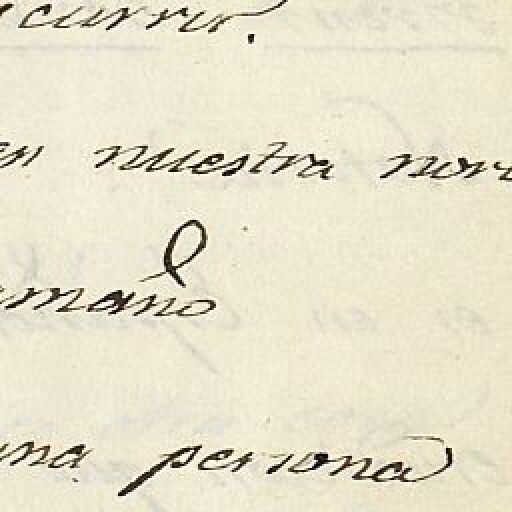 currir.
en nuestra nor
mano
una persona